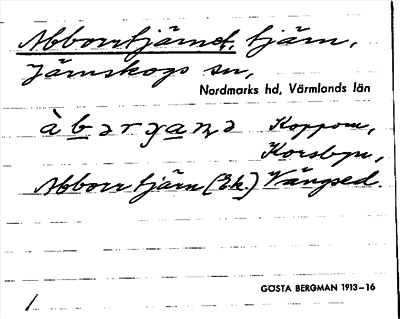 Abborrtjärnet, tjärn,
Järnskogs sn,
Nordmarks hd, Värmlands län
Koppom,
Korsbyn,
Abborrtjärn (Ek.) Vängsed.
GÖSTA BERGMAN 1913–16
1